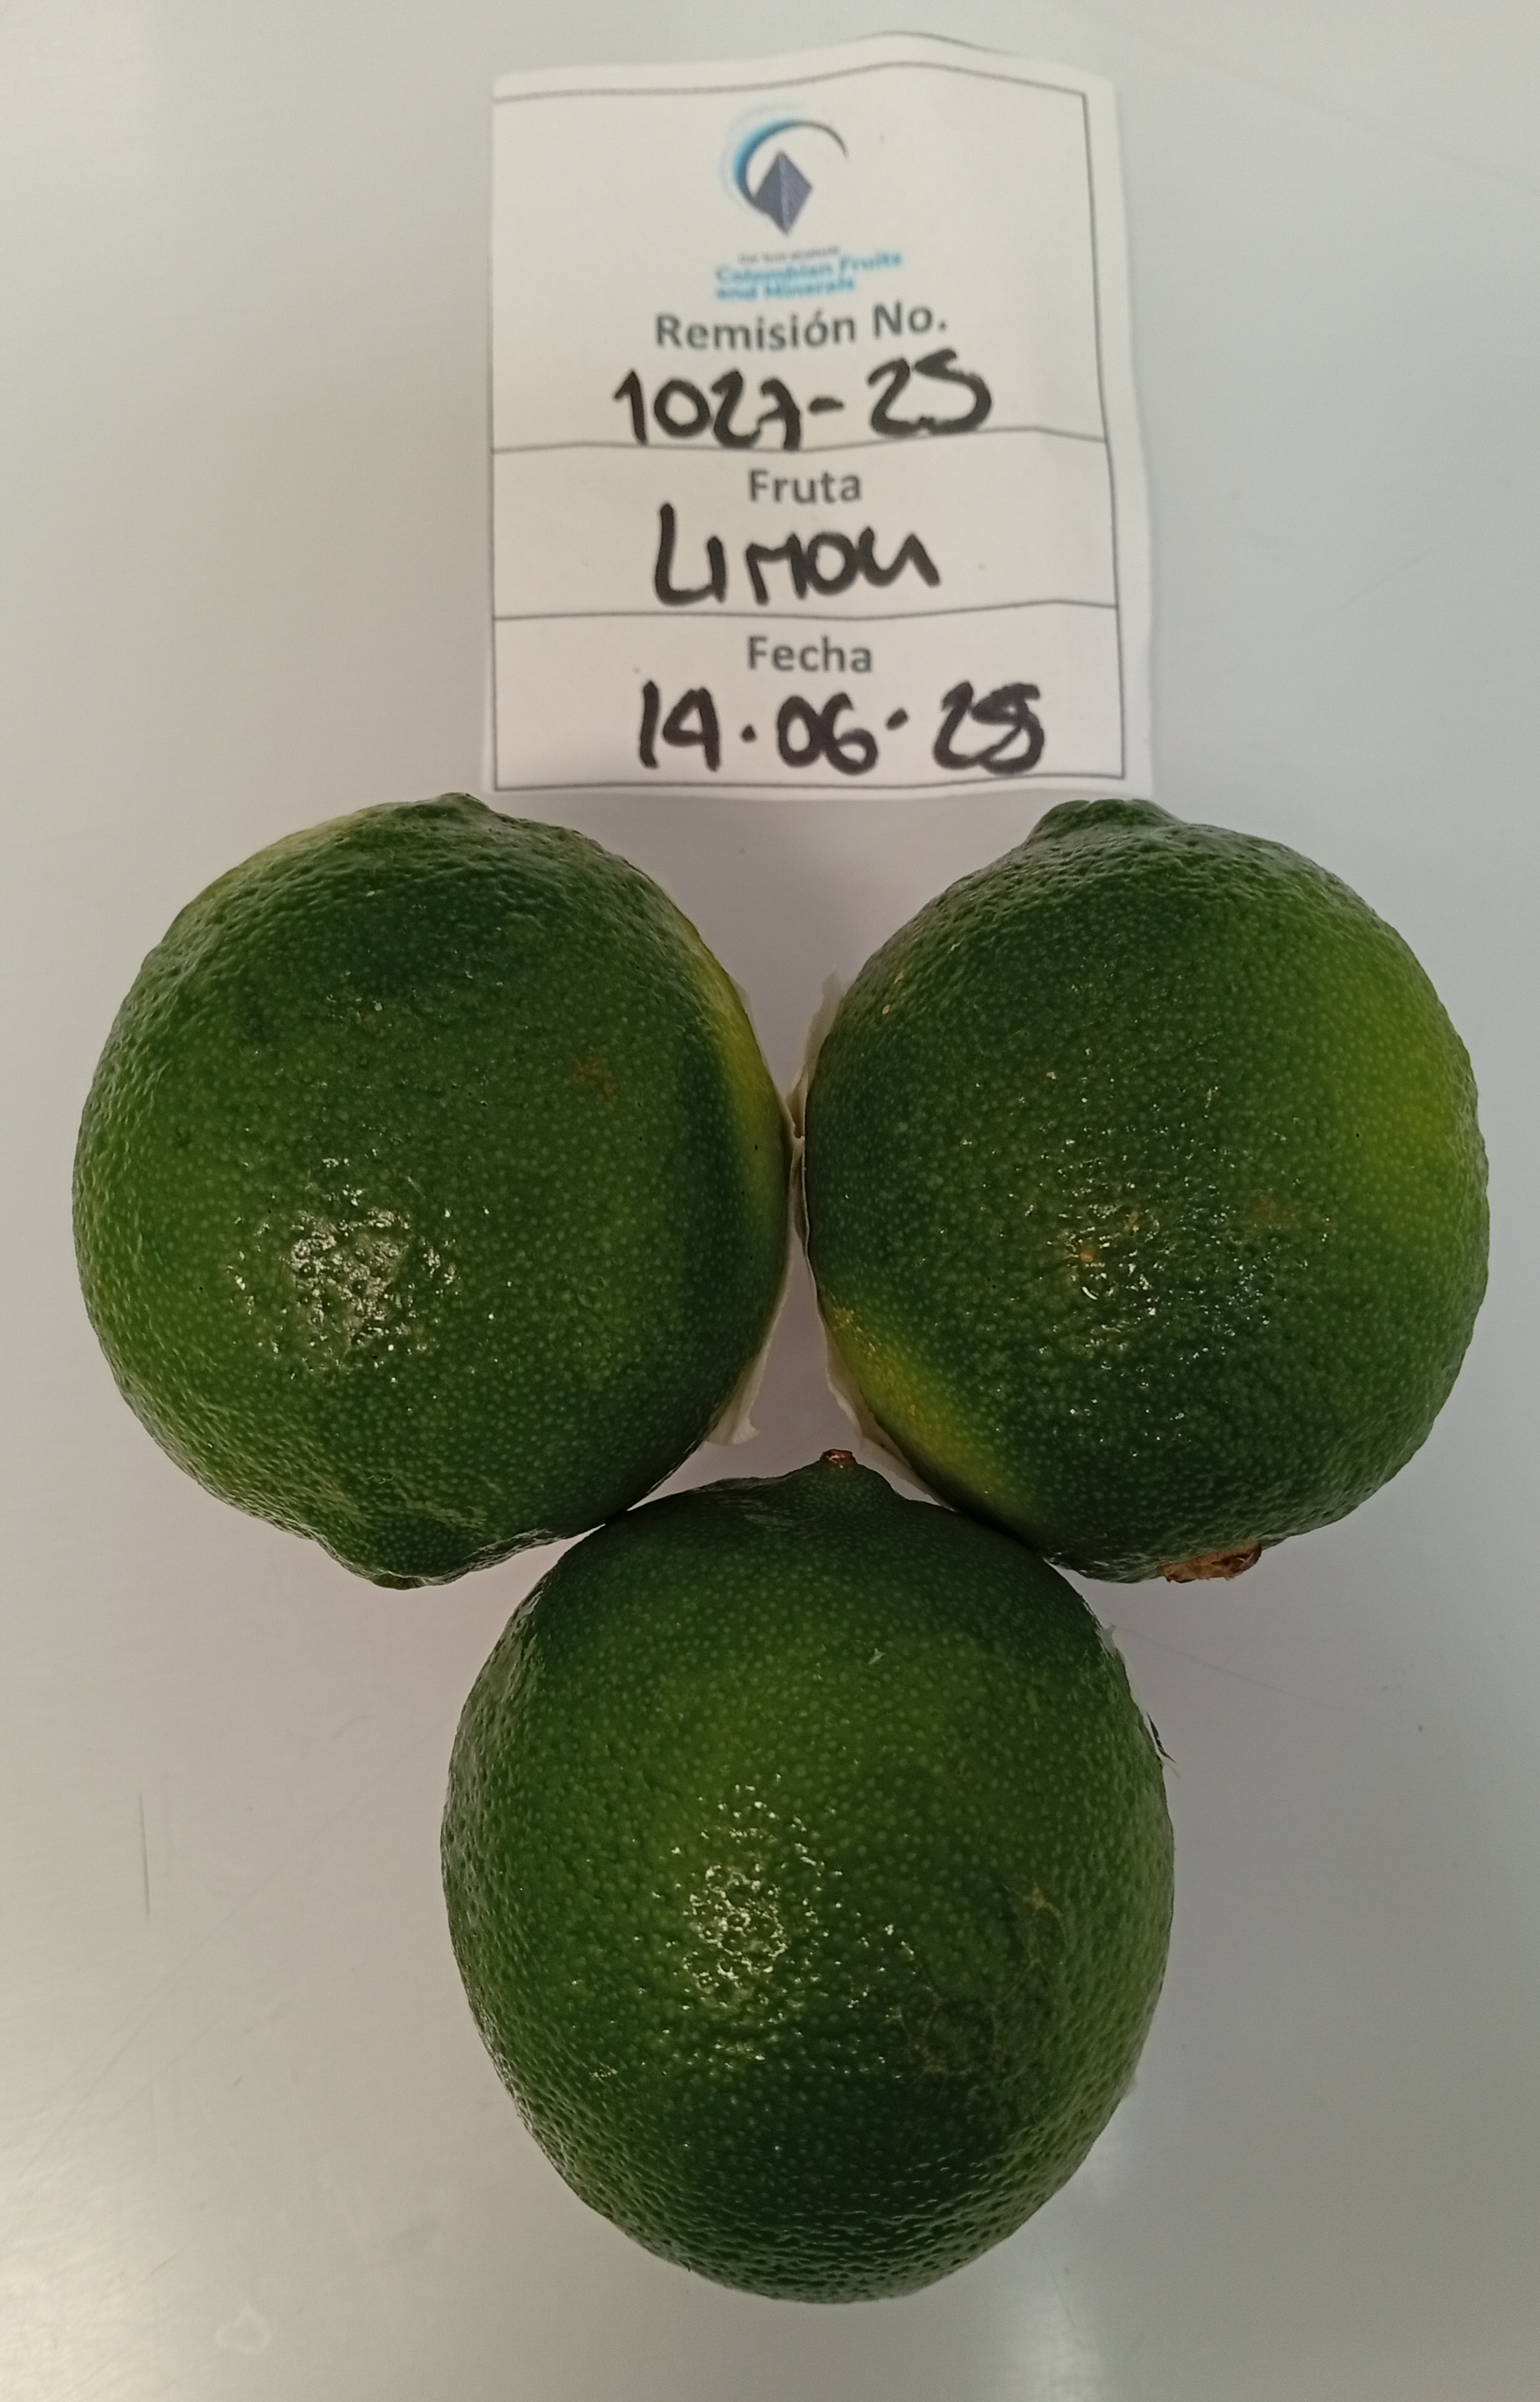 Colombian Fruits
and Minerals
Remisión No.
1027-25
Fruta
Limon
Fecha
14.06.25